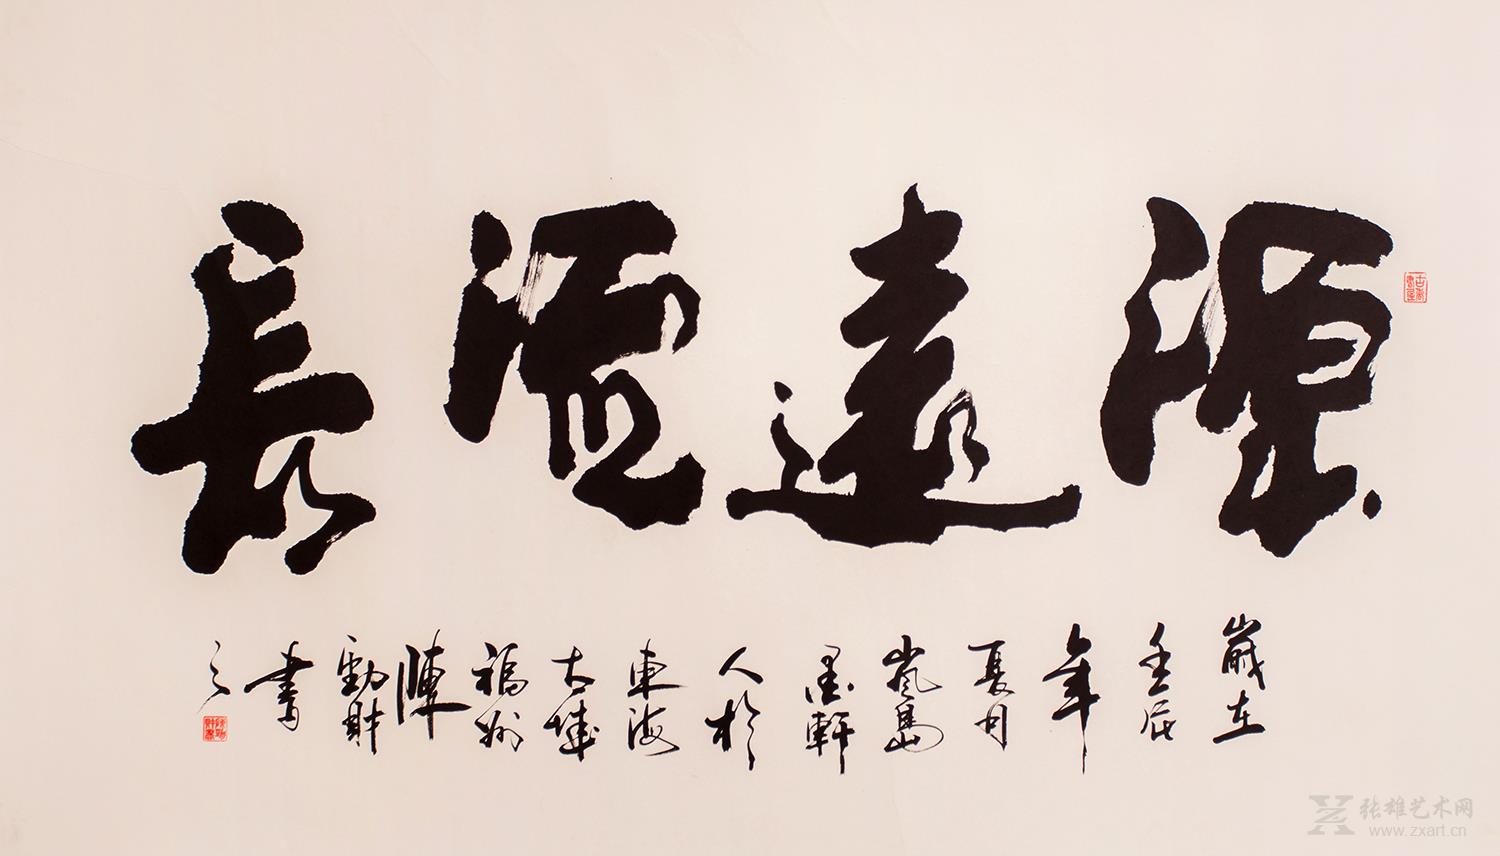 源遠流長
歲在壬辰年夏月嵐島墨軒人於東海古城福州陳財書之
张雄艺术网
www.zxart.cn